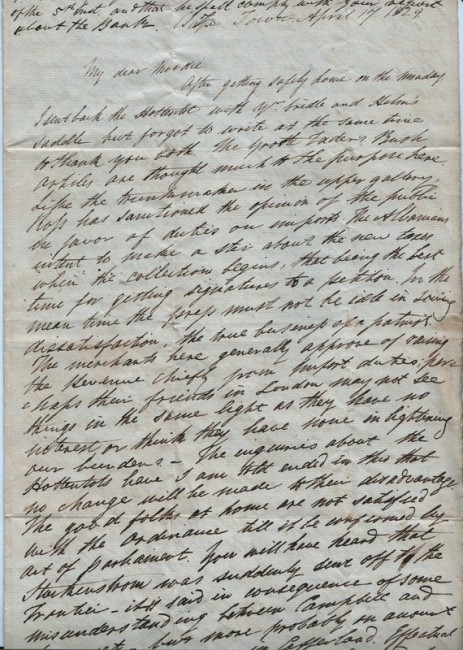 of the 5th Inst. and that we shall comply with your request
about the Books. Cape Town April 17 1829
My dear Moodie
After getting safely home on the Monday
I sent back the Hottentot with yr bridle and Helm's
saddle but forgot to write at the same time
to thank you both. The
articles are thought much to the purpose here
Like the trunkmaker in the upper gallery
Ross has sanctioned the opinion of the public
in favor of duties on imports. The Albanians
intent to make a stir about the new taxes
when the collection begins, that being the best
time for getting signatures to a petition. In the
mean time the press must not be idle in
dissatisfaction, the true business of a patriot.
The merchants here generally approve of raising
the Revenue chiefly from Import duties; per=
chaps their friends in London may not see
things in the same light as they have no
interest, or think they have none in lightening
our burdens – The inquiries about the
Hottentots have I am told ended in this that
no change will be made to their disadvantage
The good folks at home are not satisfied
with the Ordinance till it be confirmed by
act of Parliament. You will have heard that
Stockenstrom was suddenly sent off to the
Frontier – it is said in consequence of some
misunderstanding between Campbell and
but more probably on account
Effectual